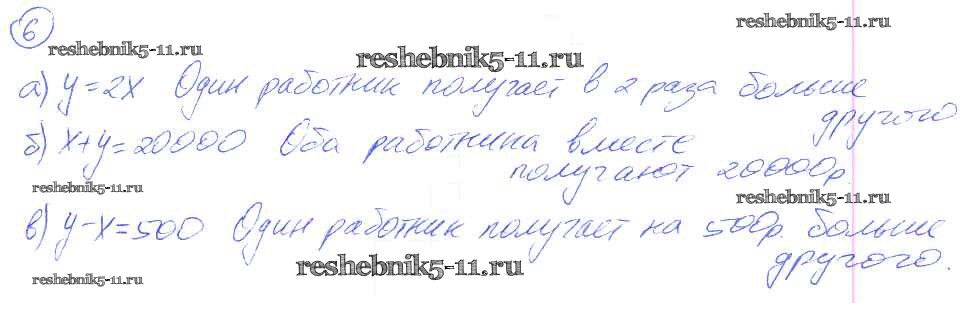 6
reshebnik5-11.ru
reshebnik5-11.ru
reshebnik5-11.ru
а) y=2x Один работник получает в 2 раза больше
другого
б) x+y=20000 Оба работника вместе
получают 20000р.
reshebnik5-11.ru
reshebnik5-11.ru
в) y-x=500 Один работник получает на 500р. больше
другого.
reshebnik5-11.ru
reshebnik5-11.ru